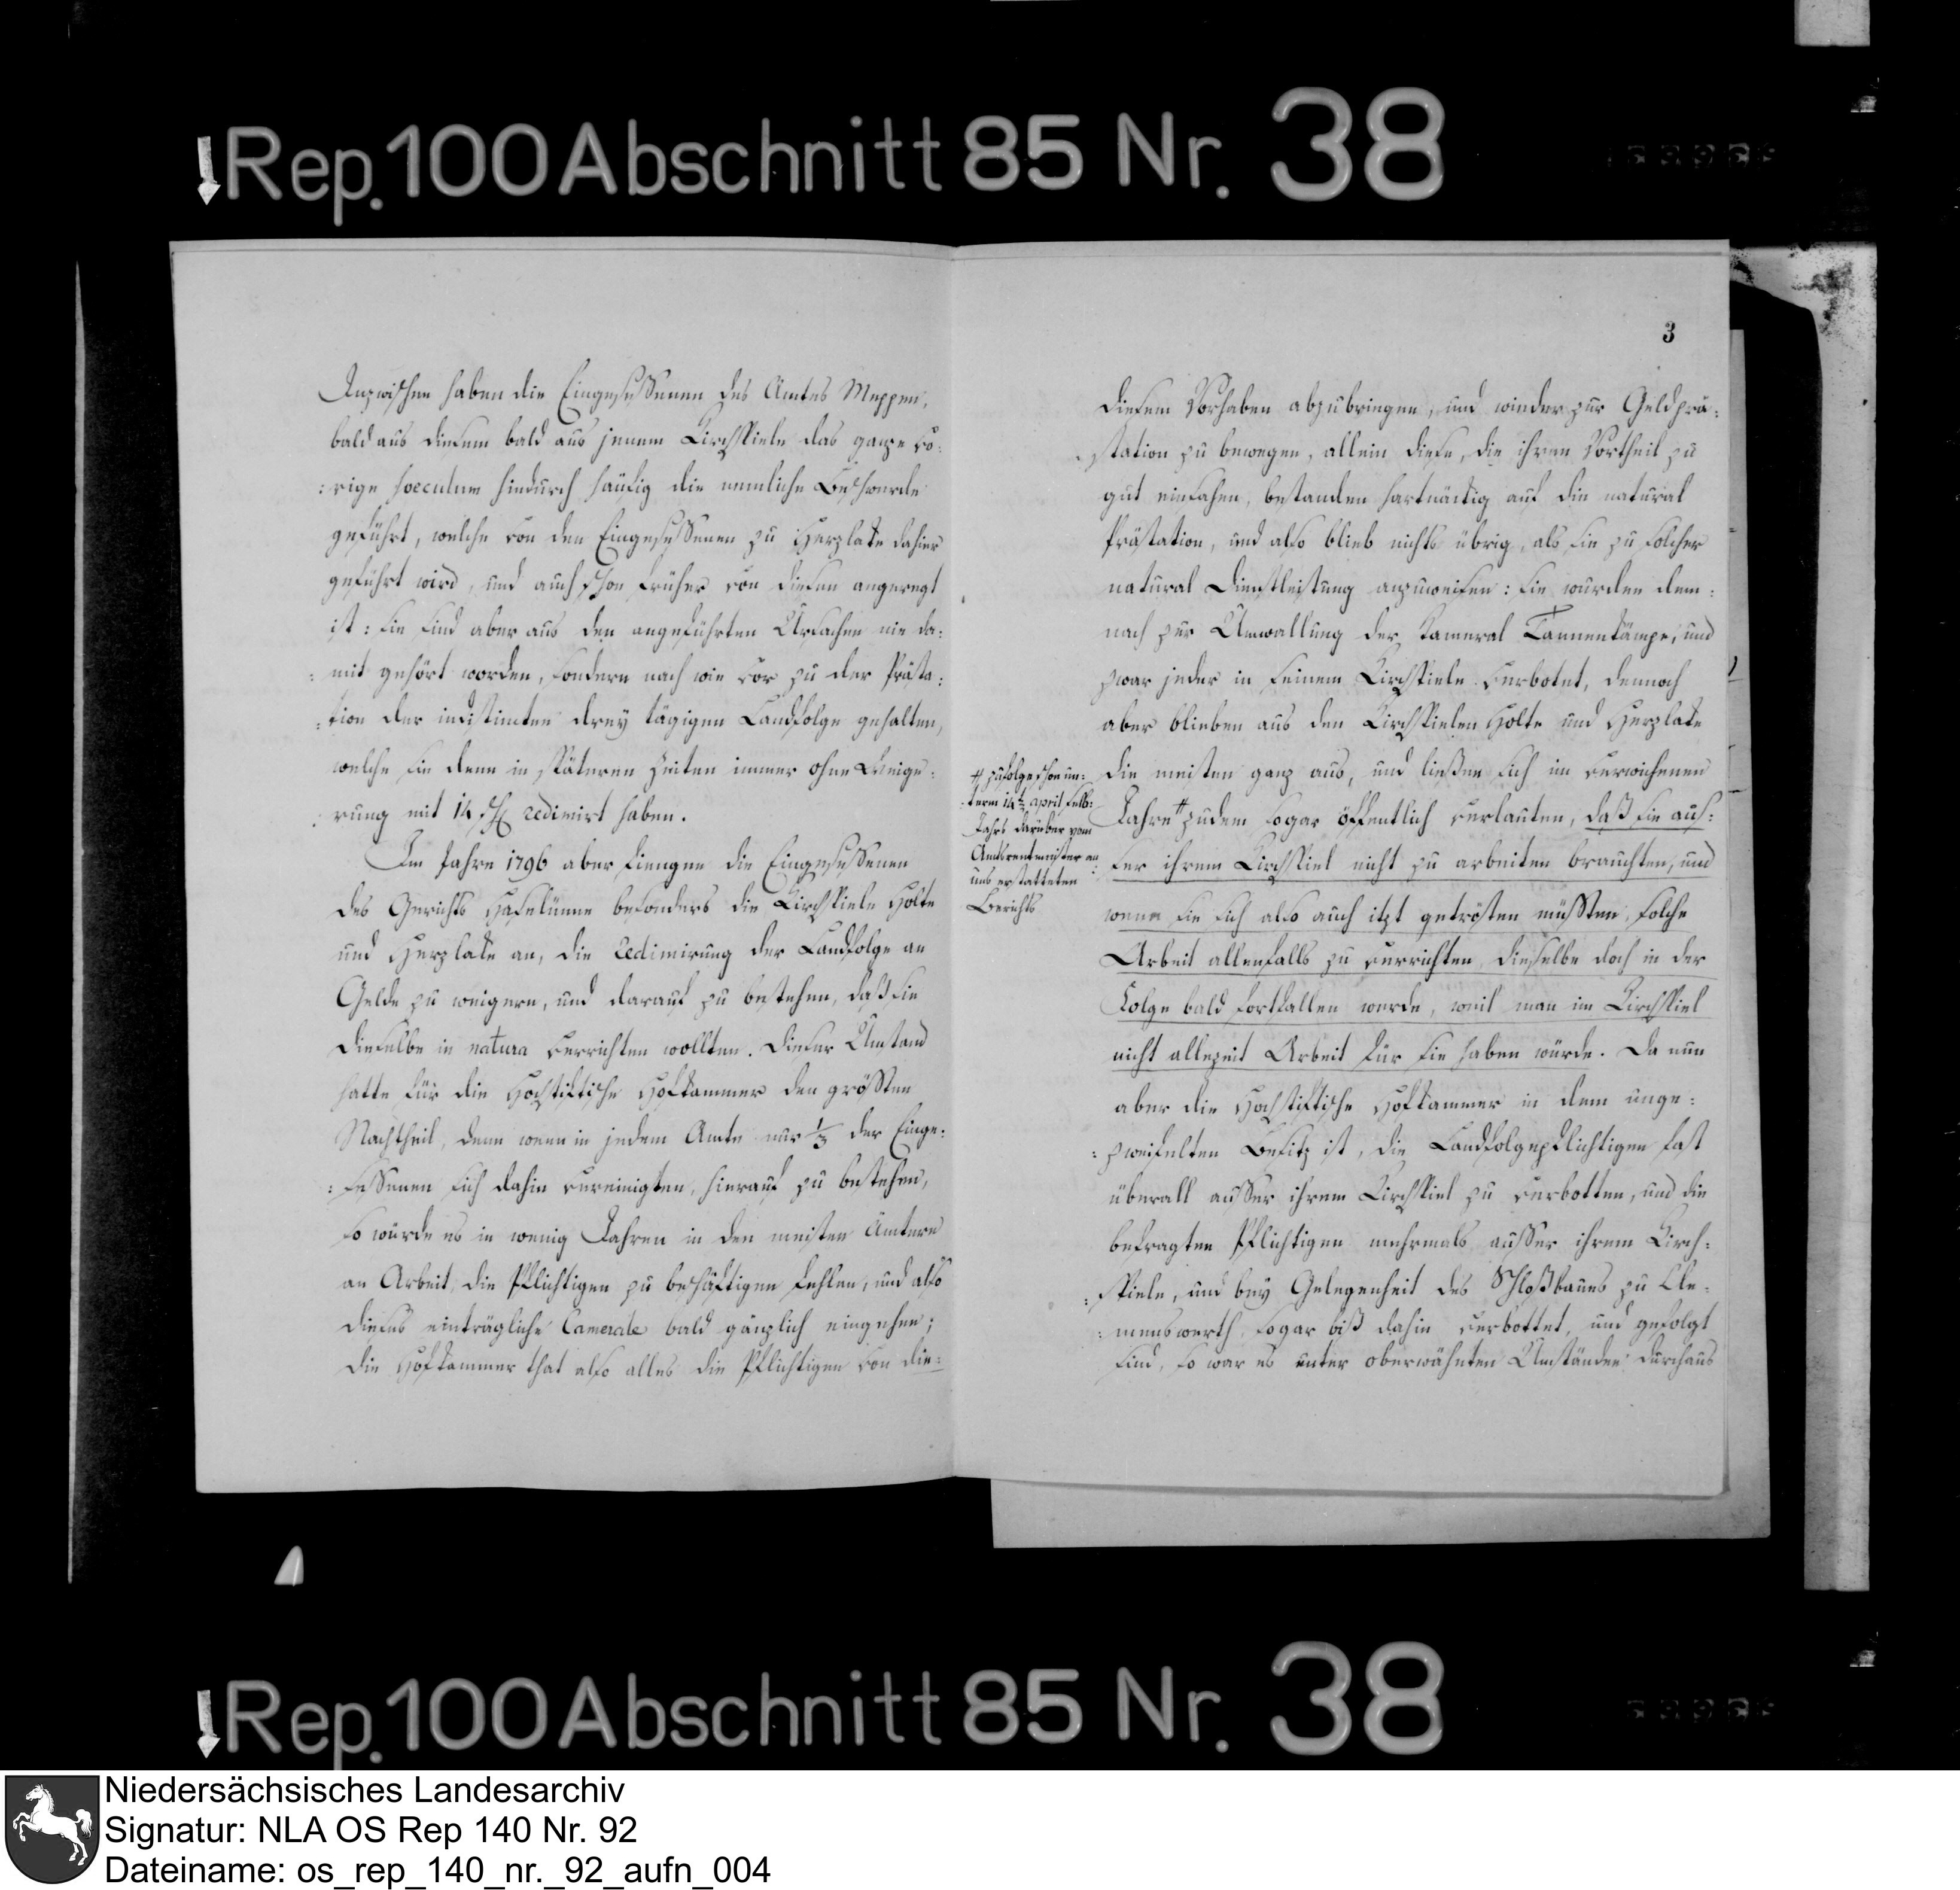 Rep. 100 Abschnitt 85 Nr. 38
Inzwischen haben die Eingesessenen des Amtes Meppen,
bald aus diesem bald aus jenem Kirchspiele das ganze vo:
:rige soeculum hindurch häufig die nemliche Beschwerde
geführt, welche von den Eingesessenen zu Herzlake dahier
geführt wird, und auch schon früher von diesen angeregt
ist: sie sind aber aus den angeführten Ursachen nie da:
:mit gehört worden, sondern nach wie vor zu der Prästa:
:tion der indistincten drey tägigen Landfolge gehalten,
welche sie denn in späteren Zeiten immer ohne Weige:
:rung mit 14 redimirt haben.
Im Jahre 1796 aber fiengen die Eingesessenen
des Gerichts Haselünne besonders die Kirchspiele Holte
und Herzlake an, die Redimirung der Landfolge an
Gelde zu weigern, und darauf zu bestehen, daß sie
dieselbe in natura verrichten wollten. Dieser Umstand
hatte für die Hochstiftische Hofkammer den größten
Nachtheil, denn wenn in jedem Amte nur 1/3 der Einge:
:sessenen sich dahin vereinigten, hierauf zu bestehen,
so würde es in wenig Jahren in den meisten Ämtern
an Arbeit, die Pflichtigen zu beschäftigen fehlen, und also
dieses einträgliche Camerale bald gänzlich eingehen;
die Hofkammer that also alles die Pflichtigen von die:
3
diesem Vorhaben abzubringen, und wieder zur Geldprä:
:station zu bewegen, allein diese, die ihren Vortheil zu
gut einsahen, bestanden hartnäckig auf die natural
Prästation, und also blieb nichts übrig, als sie zu solcher
natural Dienstleistung anzuweisen: sie wurden dem:
nach zur Umwallung der Kameral Tannenkämpe, und
zwar jeder in seinem Kirchspiele verbotet, dennoch
aber blieben aus den Kirchspielen Holte und Herzlake
die meisten ganz aus, und ließen sich im verwichenen
Jahre # zudem sogar öffentlich verlauten, daß sie aus:
:ser ihrem Kirchspiel nicht zu arbeiten brauchten, und
wenn sie sich also auch itzt getrösten müssten, solche
Arbeit allenfalls zu verrichten, dieselbe doch in der
Folge bald fortfallen werde, weil man im Kirchspiel
nicht allezeit Arbeit für sie haben würde. Da nun
aber die Hochstiftische Hofkammer in dem unge:
:zweifelten Besitz ist, die Landfolgepflichtigen fast
überall ausser ihrem Kirchspiel zu verbotten, und die
befragten Pflichtigen mehrmals ausser ihrem Kirch:
:spiele, und bey Gelegenheit des Schloßbaues zu Cle:
:menswerth sogar biß dahin verbottet, und gefolgt
sind, so war es unter oberwähnten Umständen durchaus
# zufolge schon un:
:term 14t april selb:
Jahrs darüber vom
Amtsrentmeister an
uns erstatteten
Berichts
Rep. 100 Abschnitt 85 Nr. 38
Niedersächsisches Landesarchiv
Signatur: NLA OS Rep 140 Nr. 92
Dateiname: os_rep_140_nr._92_aufn_004